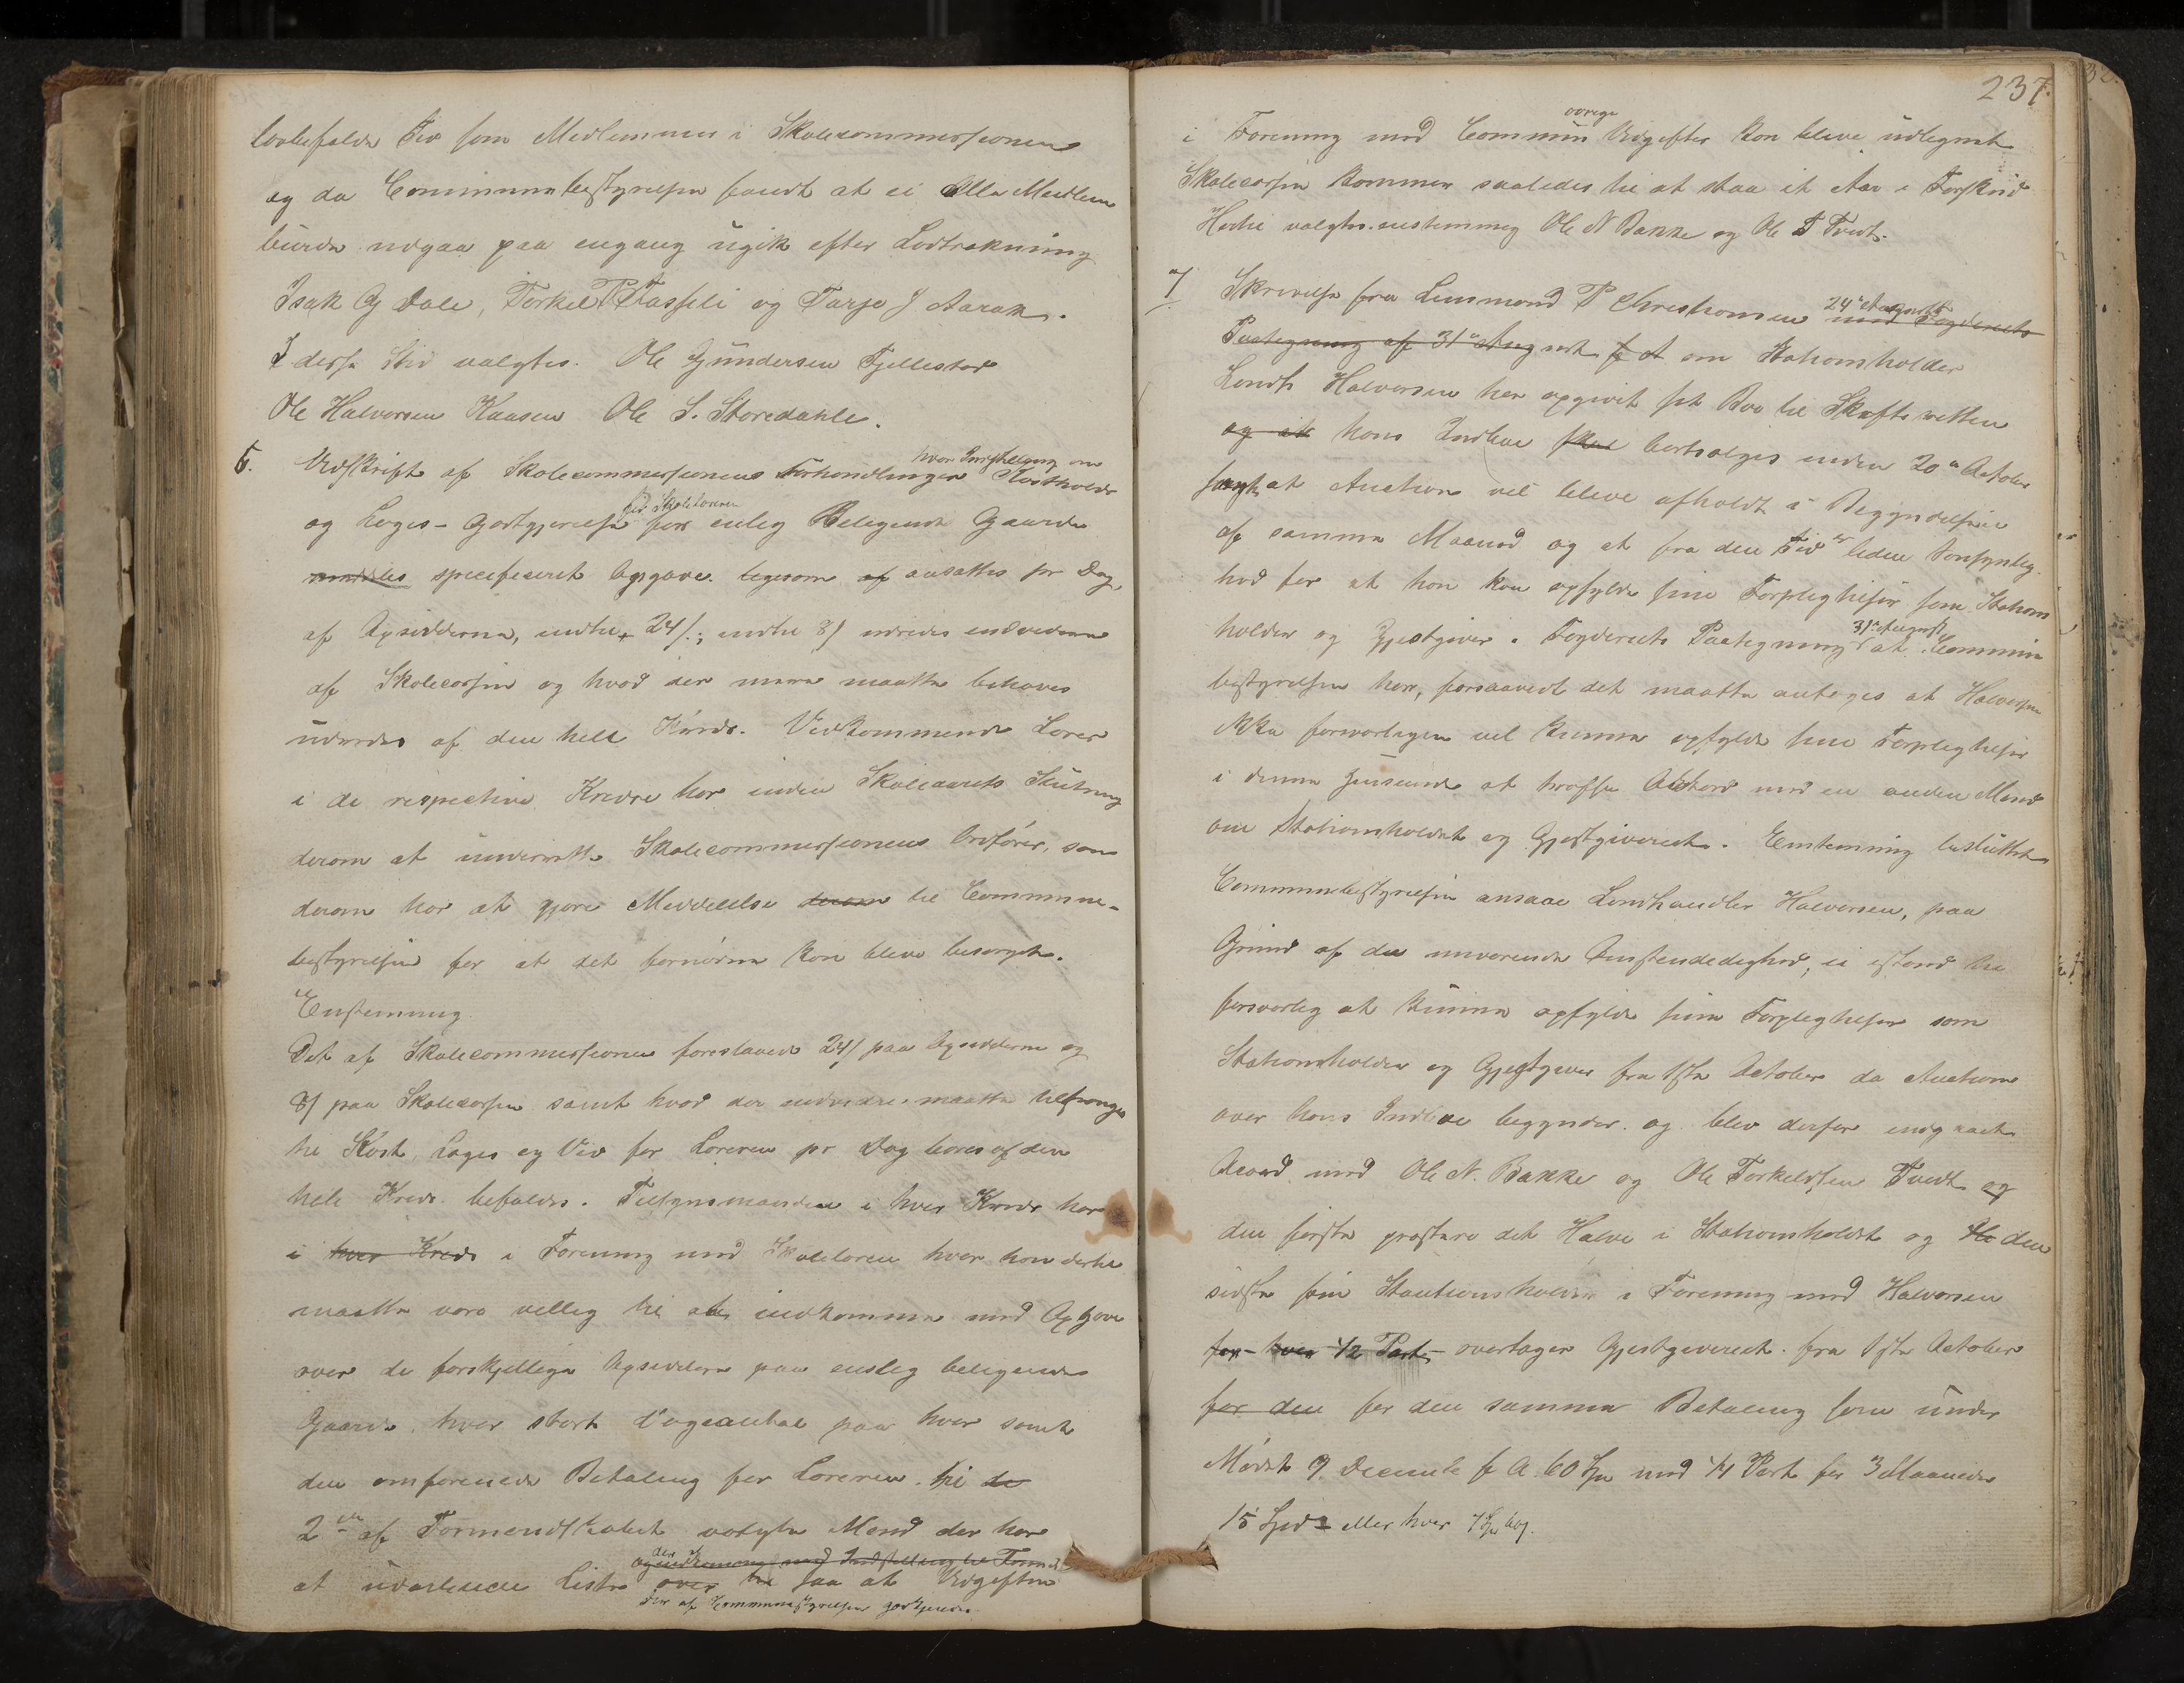 lovbefalde Tid som Medlemmer i Skolecommissionen
og da Communebestyrelsen fandt at ei Alle Medlem
burde udgaa paa engang ugik efter Lodtrækning
Isak G Dale, Torkel P Fasseli og Tarje J Aarak.
I disse Sted valgtes. Ole Gundersen Fjellestad
Ole Halvorsen Kaasen Ole S. Storedahle.
6. Udskrift af Skolecommissionens Forhandlinger hvori Indstilling om Kosthold
og Logis-Godtgjørelse for Skolelæreren for enlig Beligende Gaarde
specificeret Opgave ligesom af ansattes pr Dag
af Opsidderne, indtil 24/; indtil 8/ udredes
af Skolecassen og hvad der mere maatte behøves
udredes af den hele Kreds. Vedkommende Lærer
i de respective Kredse har inden Skoleaarets Slutning
derom at underrette Skolecommissionens Ordfører, som
derom har at gjøre Meddelelse derom til Commune-
bestyrelsen for at det fornødne kan blive besørget.
Enstemmig
Det af Skolecommissionen foreslaaede 24/ paa Opsidderne og
8/ paa Skolecassen samt hvad der endvidere maatte
til Kost, Logis og Ved for Læreren pr Dag bæres af den
hele Kreds befaldes. Tilsynsmanden i hver Kreds har
i hver Kreds i Forening med Skolelæren hvor han dertil
maatte være villig til at indkomme med Opgave
over de forskjellige Opsiddere paa enslig beligende
Gaarde, hvor stort Dageantal paa hver samt
den omforenede Betaling for Læreren. til de
2de af Formendskabet valgte Mænd der har
at udarbeide Liste over til saa at Udgiften
der af Communestyrelsen godkjendes
237.
i Forening med Commun øvrige Udgifter kan blive udlegnet
Skolecassen kommer saaledes til at staa et Aar i Forskud
Hertil valgtes enstemmig Ole N Bakke og Ole T Tvedt.
7 Skrivelse fra Lensmand P Christiansen 24de August med Fogderiets
Paategning af 31te August f A om Stationsholder
Landh Halvorsen har opgivet sit Bo til Skifteretten
og at hans Indboe skal bortsælges inden 20de October
samt at Auction vil blive afholdt i Begyndelsen
af samme Maaned og at fra den Tid er liden Sandsynlig-
hed for at han kan opfylde sine Forpligtelser som Stations
holder og Gjestgiver. Fogderiets Paategning 31te August at Commun
bestyrelsen har, forsaavidt det maatte antages at Halvorsen
ikke forsvarligen vil kunne opfylde sine Forpligtelser
i denne Henseende at træffe Akkord med en anden Mand
om Stationsholdet og Gjestgiveriet. Enstemmig besluttet
Communebestyrelsen ansaae Landhandler Halvorsen, paa
Grund af de nuværende Omstendedighed, ei istand til
forsvarlig at kunne opfylde sine Forpligtelser som
Stationsholder og Gjestgiver fra 1ste October da Auction
over hans Indboe begynder. og blev derfor indgaaet
Accord med Ole N. Bakke og Ole Torkeldsen Tvedt og
den første præstere det Halve i Stationsholdet og den
sidste som Stationsholder i Forening med Halvorsen
for hver 1/2 Part overtager Gjestgiveriet fra 1ste October
for den for den samme Betaling som under
Mødet 9 December f A. 60 Spd med 1/4 Part for 3 Maaneder
15 Spd eller hver 7 Spd 60/.